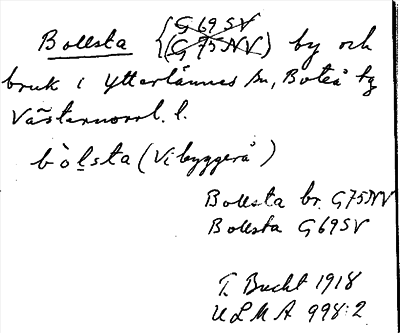 Bollsta {G 69 SV
(G 75 NV) by och
bruk i Ytterlännes sn, Boteå tg
Västernorrl. l.
bòlsta (Vibyggerå)
Bollsta br. G75NV
Bollsta G69SV
T. Bucht 1918
ULMA 998:2